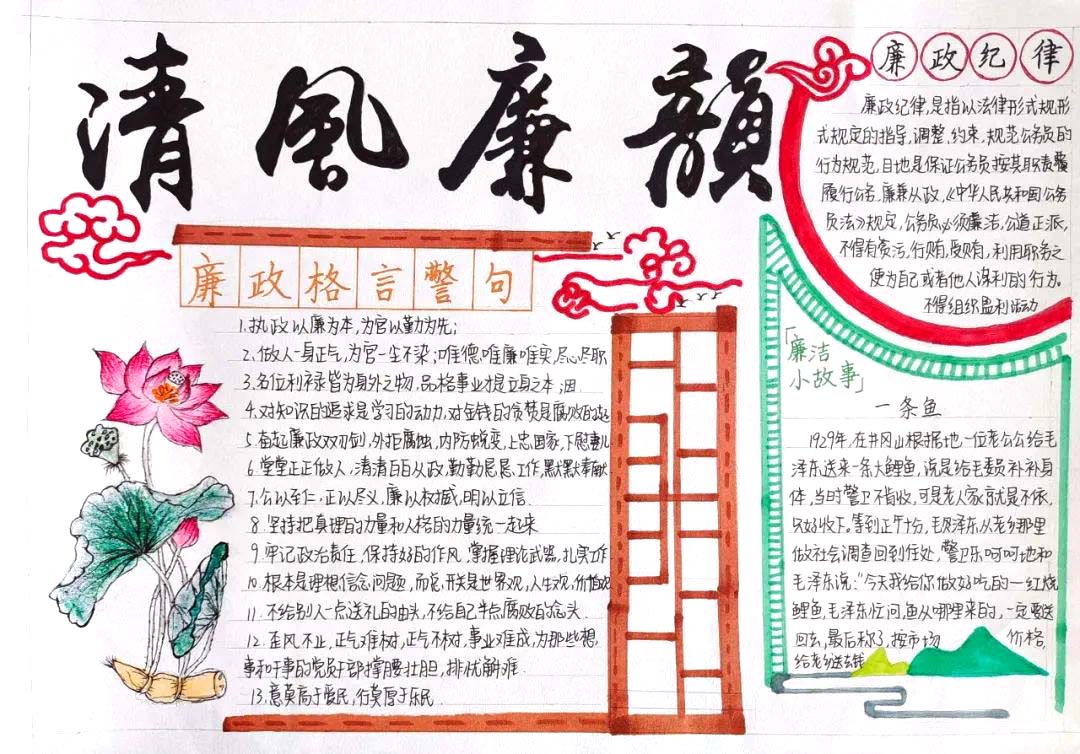 清风廉韻
廉政格言警句
1.执政以廉为本,为官以勤为先;
2.做人一身正气,为官一尘不染;唯德唯廉唯实,尽心尽职
3.名位利禄皆为身外之物,品格事业才是立身之本
4.对知识的追求是学习的动力,对金钱的贪婪是腐败的起
5.廉政双刃剑,外拒腐蚀,内防蜕变,上忠国家,下慰妻儿
6.堂堂正正做人,清清白白从政,勤勤恳恳工作,默默奉献
7.公以至仁,正以尽义,廉以权威,明以立信
8.坚持把真理的力量和人格的力量统一起来
9.牢记政治责任,保持好的作风,掌握理论武器,扎实工作
10.根本是理想信念问题,而总开关是世界观,人生观,价值观
11.不给别人一点送礼的由头,不给自己半点腐败的念头
12.歪风不止,正气难树,正气不树,事业难成,为那些想
事和干事的党员干部撑腰壮胆,排忧解难.
13.意莫高于爱民,行莫厚于乐民
廉政纪律
廉政纪律,是指以法律形式规形
式规定的指导,调整,约束,规范公务员的
行为规范,目地是保证公务员按其职责
履行公务,廉兼从政,《中华人民共和国公务
员法》规定,公务员必须廉洁,公道正派,
不得有贪污,行贿,受贿,利用职务之
便为自己或者他人谋利的行为。
不得组织盈利活动
「廉洁
小故事」
一条鱼
1929年,在井冈山根据地一位老公公给毛
泽东送来一条大鲤鱼,说是给毛委员补补身
体,当时警卫不肯收,可是老人家就是不依,
只好收下。等到正午十分,毛泽东从老乡那里
做社会调查回到住处,警卫乐呵呵地和
毛泽东说:"今天我给你做好吃的一红烧
鲤鱼,毛泽东忙问,鱼从哪里来的,一定要送
回去,最后称了,按市场价格,
给老乡送去钱